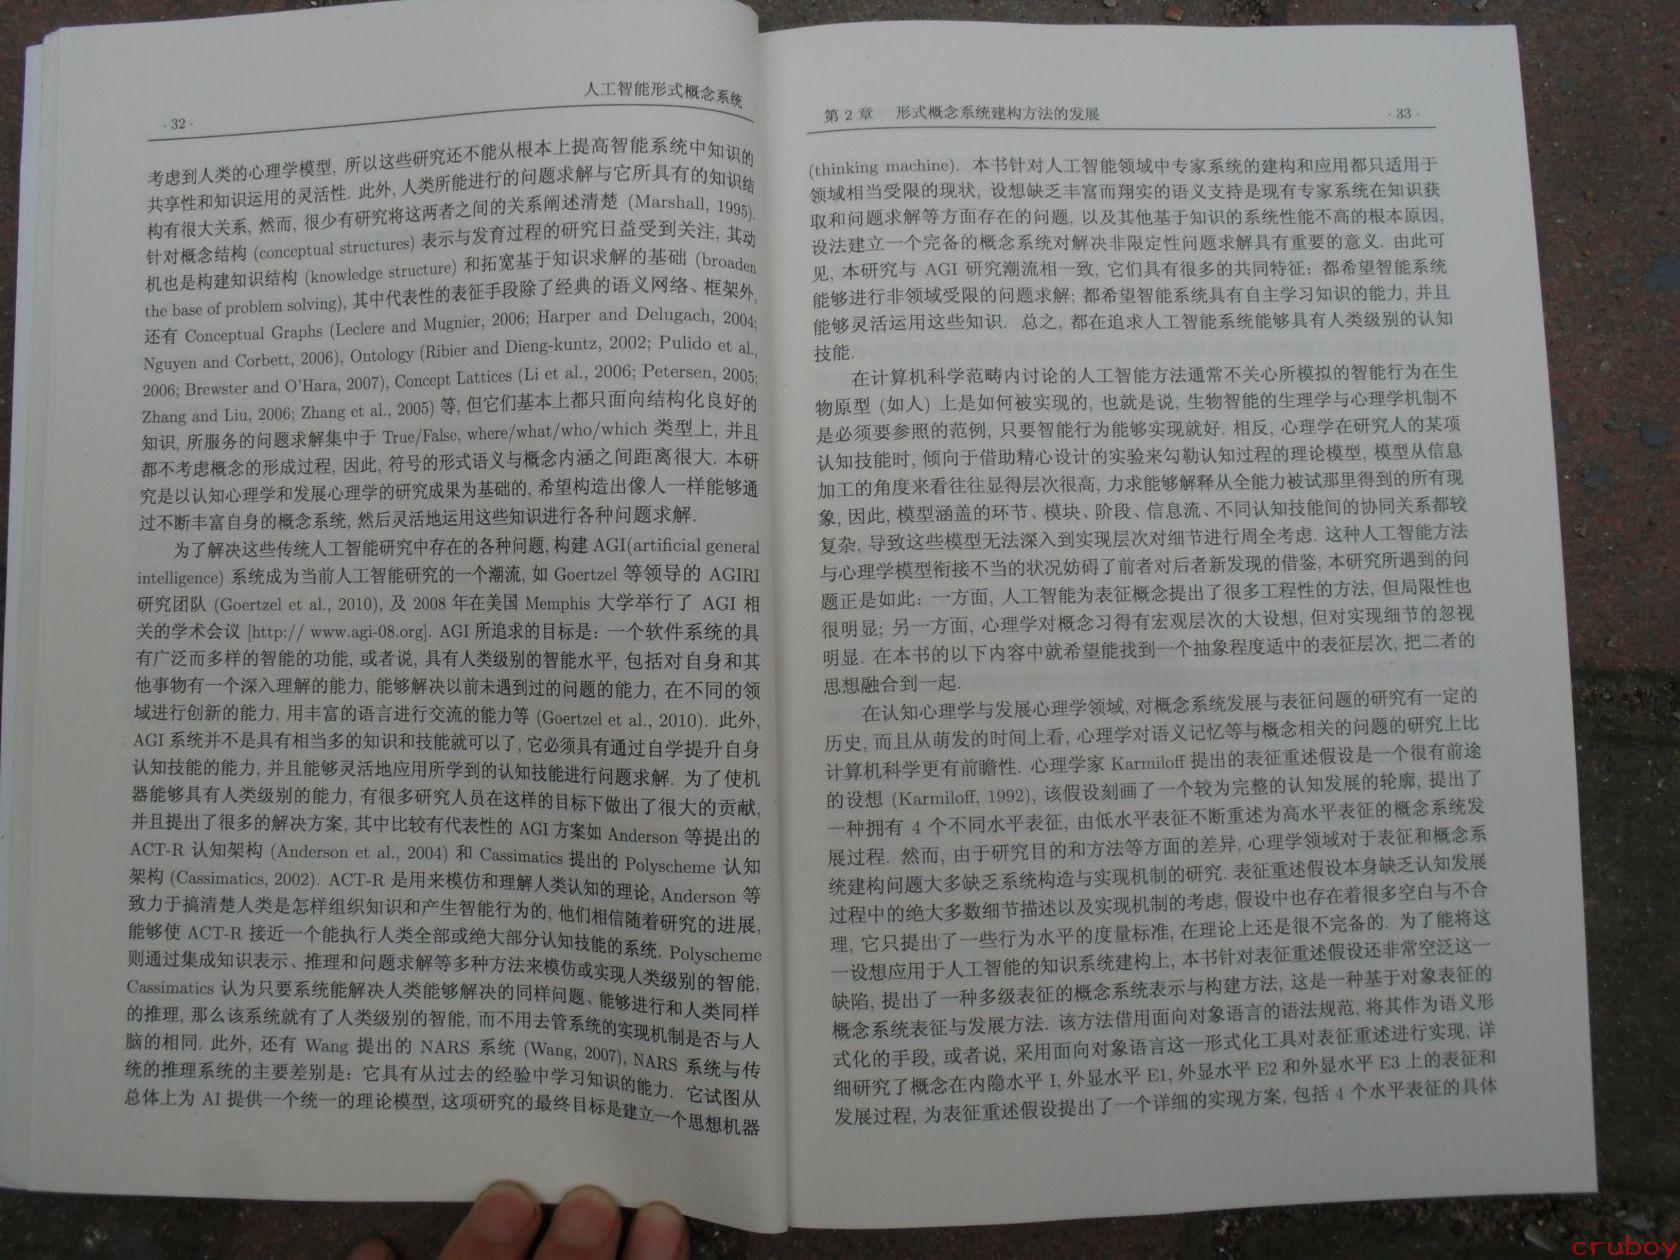 · 32 ·
人工智能形式概念系统
考虑到人类的心理学模型, 所以这些研究还不能从根本上提高智能系统中知识的
共享性和知识运用的灵活性. 此外, 人类所能进行的问题求解与它所具有的知识结
构有很大关系, 然而, 很少有研究将这两者之间的关系阐述清楚 (Marshall, 1995).
针对概念结构 (conceptual structures) 表示与发育过程的研究日益受到关注, 其动
机也是构建知识结构 (knowledge structure) 和拓宽基于知识求解的基础 (broaden
the base of problem solving), 其中代表性的表征手段除了经典的语义网络、框架外,
还有 Conceptual Graphs (Leclere and Mugnier, 2006; Harper and Delugach, 2004;
Nguyen and Corbett, 2006), Ontology (Ribier and Dieng-kuntz, 2002; Pulido et al.,
2006; Brewster and O'Hara, 2007), Concept Lattices (Li et al., 2006; Petersen, 2005;
Zhang and Liu, 2006; Zhang et al., 2005) 等, 但它们基本上都只面向结构化良好的
知识, 所服务的问题求解集中于 True/False, where/what/who/which 类型上, 并且
都不考虑概念的形成过程, 因此, 符号的形式语义与概念内涵之间距离很大. 本研
究是以认知心理学和发展心理学的研究成果为基础的, 希望构造出像人一样能够通
过不断丰富自身的概念系统, 然后灵活地运用这些知识进行各种问题求解.
为了解决这些传统人工智能研究中存在的各种问题, 构建 AGI(artificial general
intelligence) 系统成为当前人工智能研究的一个潮流, 如 Goertzel 等领导的 AGIRI
研究团队 (Goertzel et al., 2010), 及 2008 年在美国 Memphis 大学举行了 AGI 相
关的学术会议 [http:// www.agi-08.org]. AGI 所追求的目标是: 一个软件系统的具
有广泛而多样的智能的功能, 或者说, 具有人类级别的智能水平, 包括对自身和其
他事物有一个深入理解的能力, 能够解决以前未遇到过的问题的能力, 在不同的领
域进行创新的能力, 用丰富的语言进行交流的能力等 (Goertzel et al., 2010). 此外,
AGI 系统并不是具有相当多的知识和技能就可以了, 它必须具有通过自学提升自身
认知技能的能力, 并且能够灵活地应用所学到的认知技能进行问题求解. 为了使机
器能够具有人类级别的能力, 有很多研究人员在这样的目标下做出了很大的贡献,
并且提出了很多的解决方案, 其中比较有代表性的 AGI 方案如 Anderson 等提出的
ACT-R 认知架构 (Anderson et al., 2004) 和 Cassimatics 提出的 Polyscheme 认知
架构 (Cassimatics, 2002). ACT-R 是用来模仿和理解人类认知的理论, Anderson 等
致力于搞清楚人类是怎样组织知识和产生智能行为的, 他们相信随着研究的进展,
能够使 ACT-R 接近一个能执行人类全部或绝大部分认知技能的系统. Polyscheme
则通过集成知识表示、推理和问题求解等多种方法来模仿或实现人类级别的智能,
Cassimatics 认为只要系统能解决人类能够解决的同样问题、能够进行和人类同样
的推理, 那么该系统就有了人类级别的智能, 而不用去管系统的实现机制是否与人
脑的相同. 此外, 还有 Wang 提出的 NARS 系统 (Wang, 2007), NARS 系统与传
统的推理系统的主要差别是: 它具有从过去的经验中学习知识的能力. 它试图从
总体上为 AI 提供一个统一的理论模型, 这项研究的最终目标是建立一个思想机器
第 2 章 形式概念系统建构方法的发展
· 33 ·
(thinking machine). 本书针对人工智能领域中专家系统的建构和应用都只适用于
领域相当受限的现状, 设想缺乏丰富而翔实的语义支持是现有专家系统在知识获
取和问题求解等方面存在的问题, 以及其他基于知识的系统性能不高的根本原因,
设法建立一个完备的概念系统对解决非限定性问题求解具有重要的意义. 由此可
见, 本研究与 AGI 研究潮流相一致, 它们具有很多的共同特征: 都希望智能系统
能够进行非领域受限的问题求解; 都希望智能系统具有自主学习知识的能力, 并且
能够灵活运用这些知识. 总之, 都在追求人工智能系统能够具有人类级别的认知
技能.
在计算机科学范畴内讨论的人工智能方法通常不关心所模拟的智能行为在生
物原型 (如人) 上是如何被实现的, 也就是说, 生物智能的生理学与心理学机制不
是必须要参照的范例, 只要智能行为能够实现就好. 相反, 心理学在研究人的某项
认知技能时, 倾向于借助精心设计的实验来勾勒认知过程的理论模型, 模型从信息
加工的角度来看往往显得层次很高, 力求能够解释从全能力被试那里得到的所有现
象, 因此, 模型涵盖的环节、模块、阶段、信息流、不同认知技能间的协同关系都较
复杂, 导致这些模型无法深入到实现层次对细节进行周全考虑. 这种人工智能方法
与心理学模型衔接不当的状况妨碍了前者对后者新发现的借鉴, 本研究所遇到的问
题正是如此: 一方面, 人工智能为表征概念提出了很多工程性的方法, 但局限性也
很明显; 另一方面, 心理学对概念习得有宏观层次的大设想, 但对实现细节的忽视
明显. 在本书的以下内容中就希望能找到一个抽象程度适中的表征层次, 把二者的
思想融合到一起.
在认知心理学与发展心理学领域, 对概念系统发展与表征问题的研究有一定的
历史, 而且从萌发的时间上看, 心理学对语义记忆等与概念相关的问题的研究上比
计算机科学更有前瞻性. 心理学家 Karmiloff 提出的表征重述假设是一个很有前途
的设想 (Karmiloff, 1992), 该假设刻画了一个较为完整的认知发展的轮廓, 提出了
一种拥有 4 个不同水平表征, 由低水平表征不断重述为高水平表征的概念系统发
展过程. 然而, 由于研究目的和方法等方面的差异, 心理学领域对于表征和概念系
统建构问题大多缺乏系统构造与实现机制的研究. 表征重述假设本身缺乏认知发展
过程中的绝大多数细节描述以及实现机制的考虑, 假设中也存在着很多空白与不合
理, 它只提出了一些行为水平的度量标准, 在理论上还是很不完备的. 为了能将这
一设想应用于人工智能的知识系统建构上, 本书针对表征重述假设还非常空泛这一
缺陷, 提出了一种多级表征的概念系统表示与构建方法, 这是一种基于对象表征的
概念系统表征与发展方法. 该方法借用面向对象语言的语法规范, 将其作为语义形
式化的手段, 或者说, 采用面向对象语言这一形式化工具对表征重述进行实现, 详
细研究了概念在内隐水平 I, 外显水平 E1, 外显水平 E2 和外显水平 E3 上的表征和
发展过程, 为表征重述假设提出了一个详细的实现方案, 包括 4 个水平表征的具体
cruboy